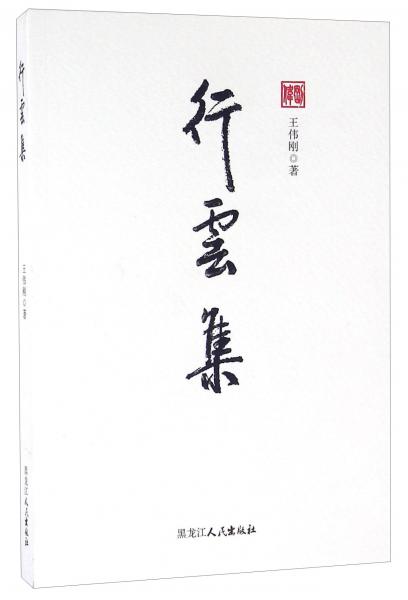 行雲集
王伟刚◎著
黑龙江人民出版社
行雲集
王伟刚◎著
黑龙江人民出版社